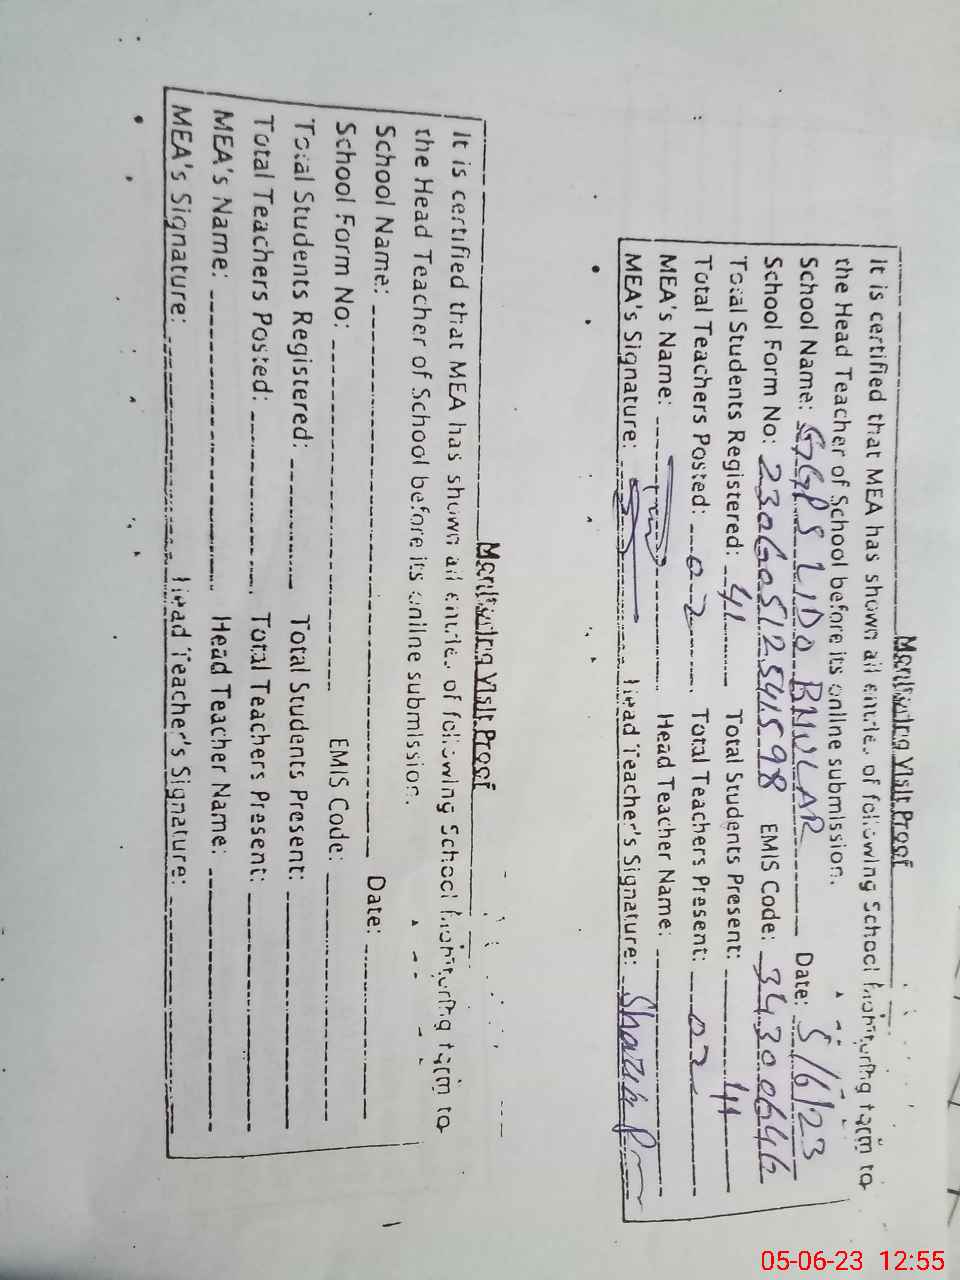 Monitoring Visit Proof
It is certified that MEA has shown all entries of following School monitoring form to
the Head Teacher of School before its online submission.
School Name: GGPS LIDO BHULAR Date: 5/6/23
School Form No: 230605125941598 EMIS Code: 34300646
Total Students Registered: 41 Total Students Present: 41
Total Teachers Posted: 02 Total Teachers Present: 02
MEA's Name: Head Teacher Name:
MEA's Signature: Head Teacher's Signature:
Monitoring Visit Proof
It is certified that MEA has shown all entries of following School monitoring form to
the Head Teacher of School before its online submission.
School Name: Date:
School Form No: EMIS Code:
Total Students Registered: Total Students Present:
Total Teachers Posted: Total Teachers Present:
MEA's Name: Head Teacher Name:
MEA's Signature: Head Teacher's Signature:
05-06-23 12:55